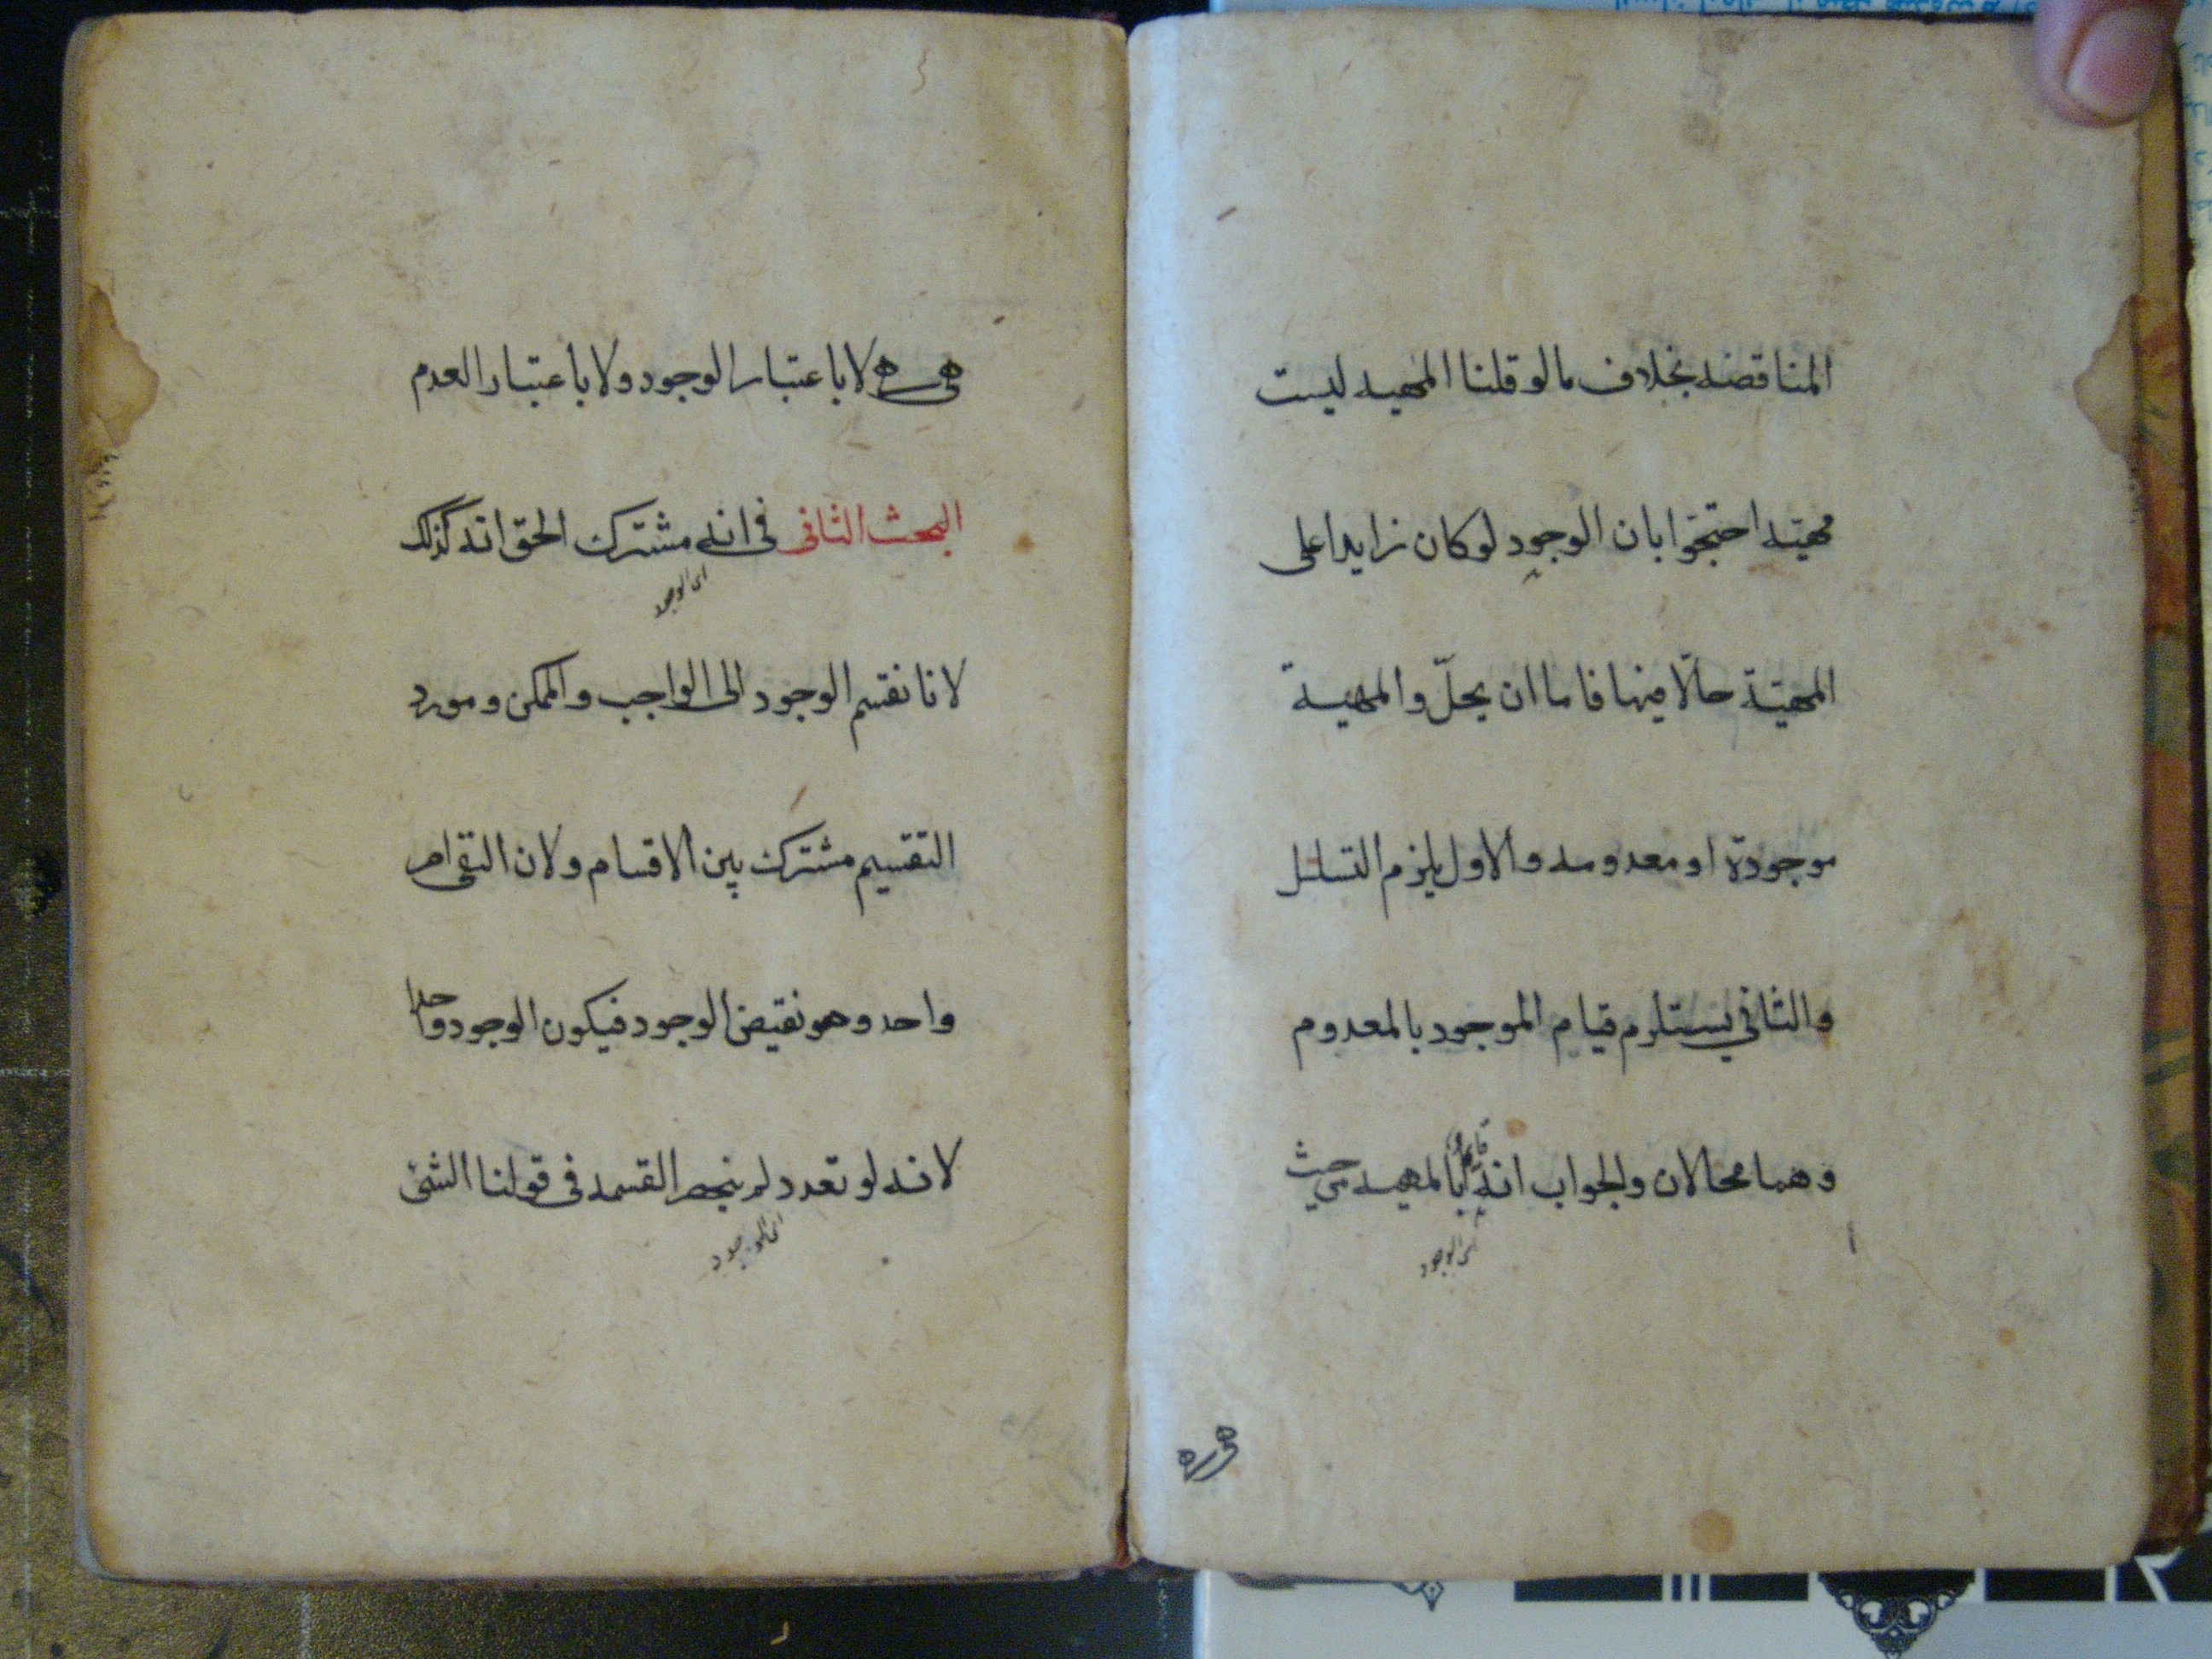 المناقضه بخلاف ما لو قلنا المهيه ليست
مهيّه احتجّوا بان الوجود لو كان زايدا على
المهيّة حالّا فيها فاما ان يحلّ والمهية
موجودة او معدومه والاول يلزم التسلسل
والثاني يستلزم قيام الموجود بالمعدوم
وهما محالان والجواب انه قايم بالمهيه من حيث
اى الوجود
هى هى لا باعتبار الوجود ولا باعتبار العدم
البحث الثانى فى انه مشترك الحق انه كذلك
اى الوجود
لانا نقسم الوجود الى الواجب والممكن ومورد
التقسيم مشترك بين الاقسام ولان النفى امر
واحد وهو نقيض الوجود فيكون الوجود واحدا
لانه لو تعدد لم ينحصر القسمه فى قولنا الشئ
اى الوجود